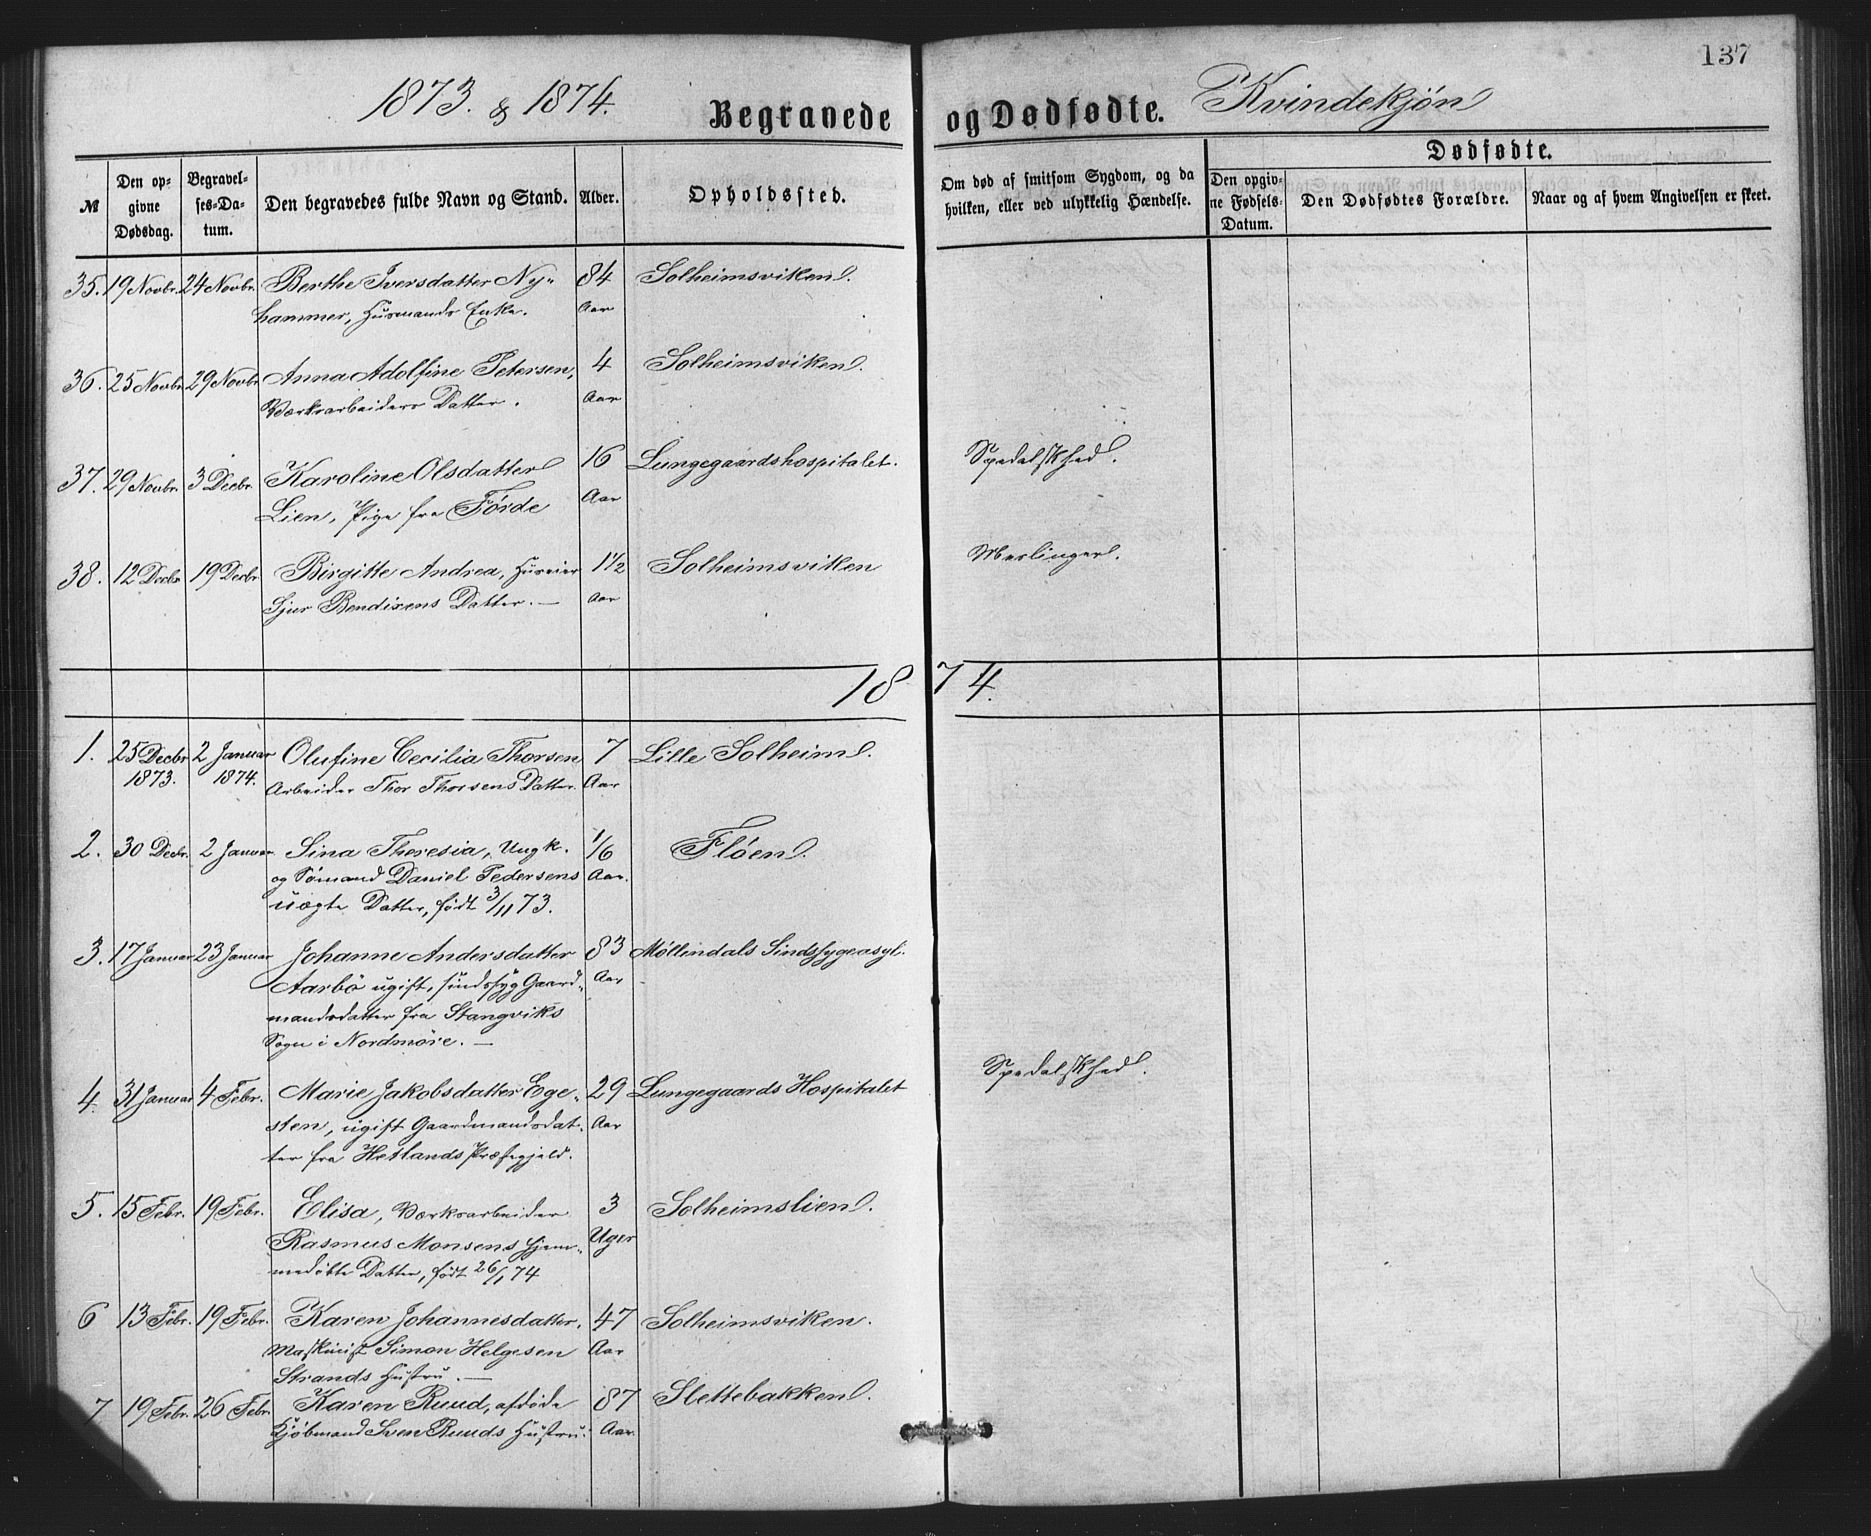 137
1873. & 1874. Begravede og Dødfødte. Kvindekjøn
№
Den op-
givne
Dødsdag.
Begravel-
ses-Da-
tum.
Den begravedes fulde Navn og Stand.
Alder.
Opholdssted.
Om død af smitsom Sygdom, og da
hvilken, eller ved ulykkelig Hændelse.
Dødfødte.
Den opgiv-
ne Fødsels-
Datum.
Den Dødfødtes Forældre.
Naar og af hvem Angivelsen er skeet.
35. 19 Novbr. 24 Novbr. Berthe Iversdatter Ny- 84 Solheimsviken.
hammer, Husmands Enke. Aar
36. 25 Novbr 29 Novbr. Anna Adolfine Petersen, 4 Solheimsviken.
Værksarbeiders Datter. Aar
37. 29 Novbr. 3 Decbr. Karoline Olsdatter 16 Lungegaardshospitalet. Spedalskhed.
Lien, Pige fra Førde Aar
38. 12 Decbr 19 Decbr. Birgitte Andrea, Huseier 1 1/2 Solheimsviken Meslinger.
Sjur Bendixens Datter. — Aar
1874.
1. 25 Decbr 2 Januar Olufine Cecilia Thorsen 7 Lille Solheim.
1873. 1874. Arbeider Thor Thorsens Datter. Aar
2. 30 Decbr. 2 Januar Sina Theresia, Ungk. 1/6 Fløen.
og Sømand Daniel Pedersens Aar.
uægte Datter, født 3/11 73.
3. 17 Januar 23 Januar Johanne Andersdatter 83 Møllendals Sindssygeasyl.
Aarbø ugift, sindssyg Gaard- Aar
mandsdatter fra Stangviks
Sogn i Nordmøre. —
4. 31 Januar 4 Febr. Marie Jakobsdatter Ege- 29 Lungegaards Hospitalet Spedalskhed.
sten, ugift Gaardmandsdat- Aar
ter fra Hetlands Præstegjeld.
5. 15 Febr. 19 Febr. Elisa, Værksarbeider 3 Solheimslien.
Rasmus Monsens hjem- Uger
medøbte Datter, født 26/1 74
6 13 Febr. 19 Febr. Karen Johannesdatter, 47 Solheimsviken.
Maskinist Simon Helgesen Aar
Strands Hustru. —
7 19 Febr. 26 Febr. Karen Ruud, afdøde 87 Slettebakken.
Kjøbmand Sven Ruuds Hustru. Aar.